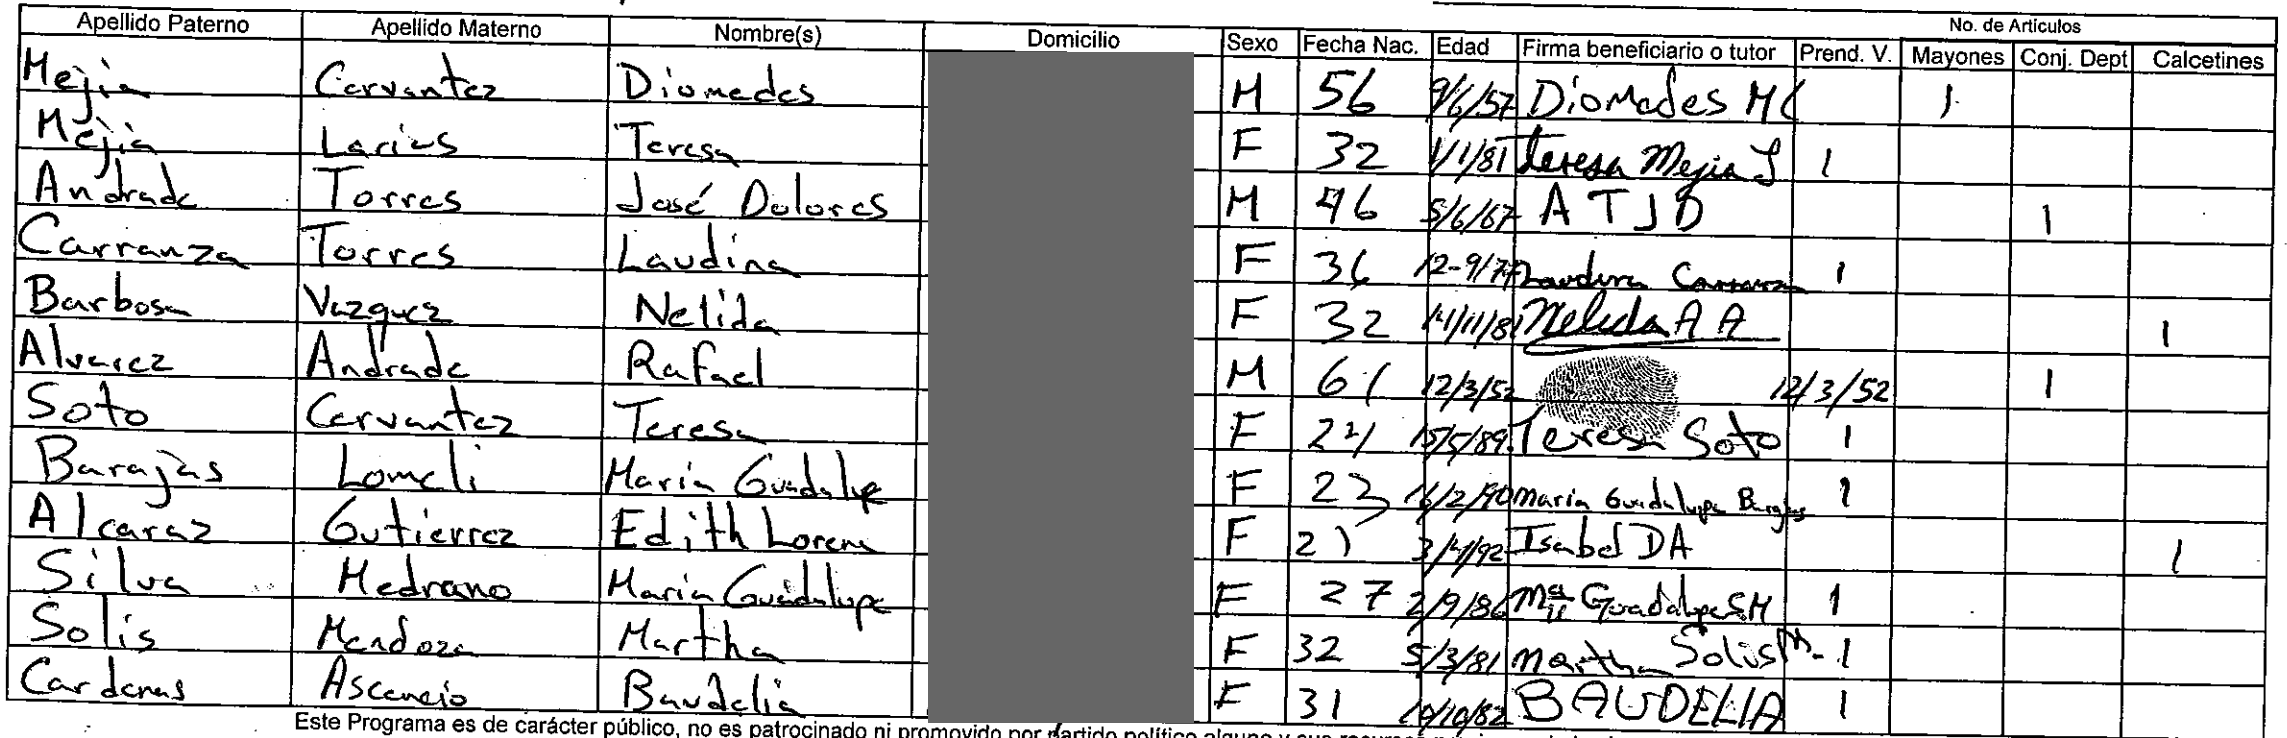 No. de Artículos
Apellido Paterno Apellido Materno Nombre(s) Domicilio Sexo Fecha Nac. Edad Firma beneficiario o tutor Prend. V. Mayones Conj. Dept Calcetines
Mejia Cervantez Diomedes M 56 9/6/57 Diomedes MC 1
Mejia Larios Teresa F 32 1/1/81 teresa Mejia L 1
Andrade Torres José Dolores M 46 5/6/67 A T J D 1
Carranza Torres Laudina F 36 12-9/77 Carranza 1
Barbosa Vazquez Nelida F 32 14/11/81 Nelida A A 1
Alvarez Andrade Rafael M 61 12/3/52 12/3/52 1
Soto Cervantez Teresa F 24 15/5/89 Teresa Soto 1
Barajas Lomeli María Guadalupe F 23 16/2/90 maria Guadalupe Barajas 1
Alcaraz Gutierrez Edith Lorena F 21 3/4/92 Isabel DA 1
Silva Medrano María Guadalupe F 27 2/9/86 Ma Guadalupe SM 1
Solis Mendoza Martha F 32 5/3/81 martha Solis M. 1
Cardenas Ascencio Baudelia F 31 /10/82 BAUDELIA 1
Este Programa es de carácter público, no es patrocinado ni promovido por partido político alguno y sus recursos